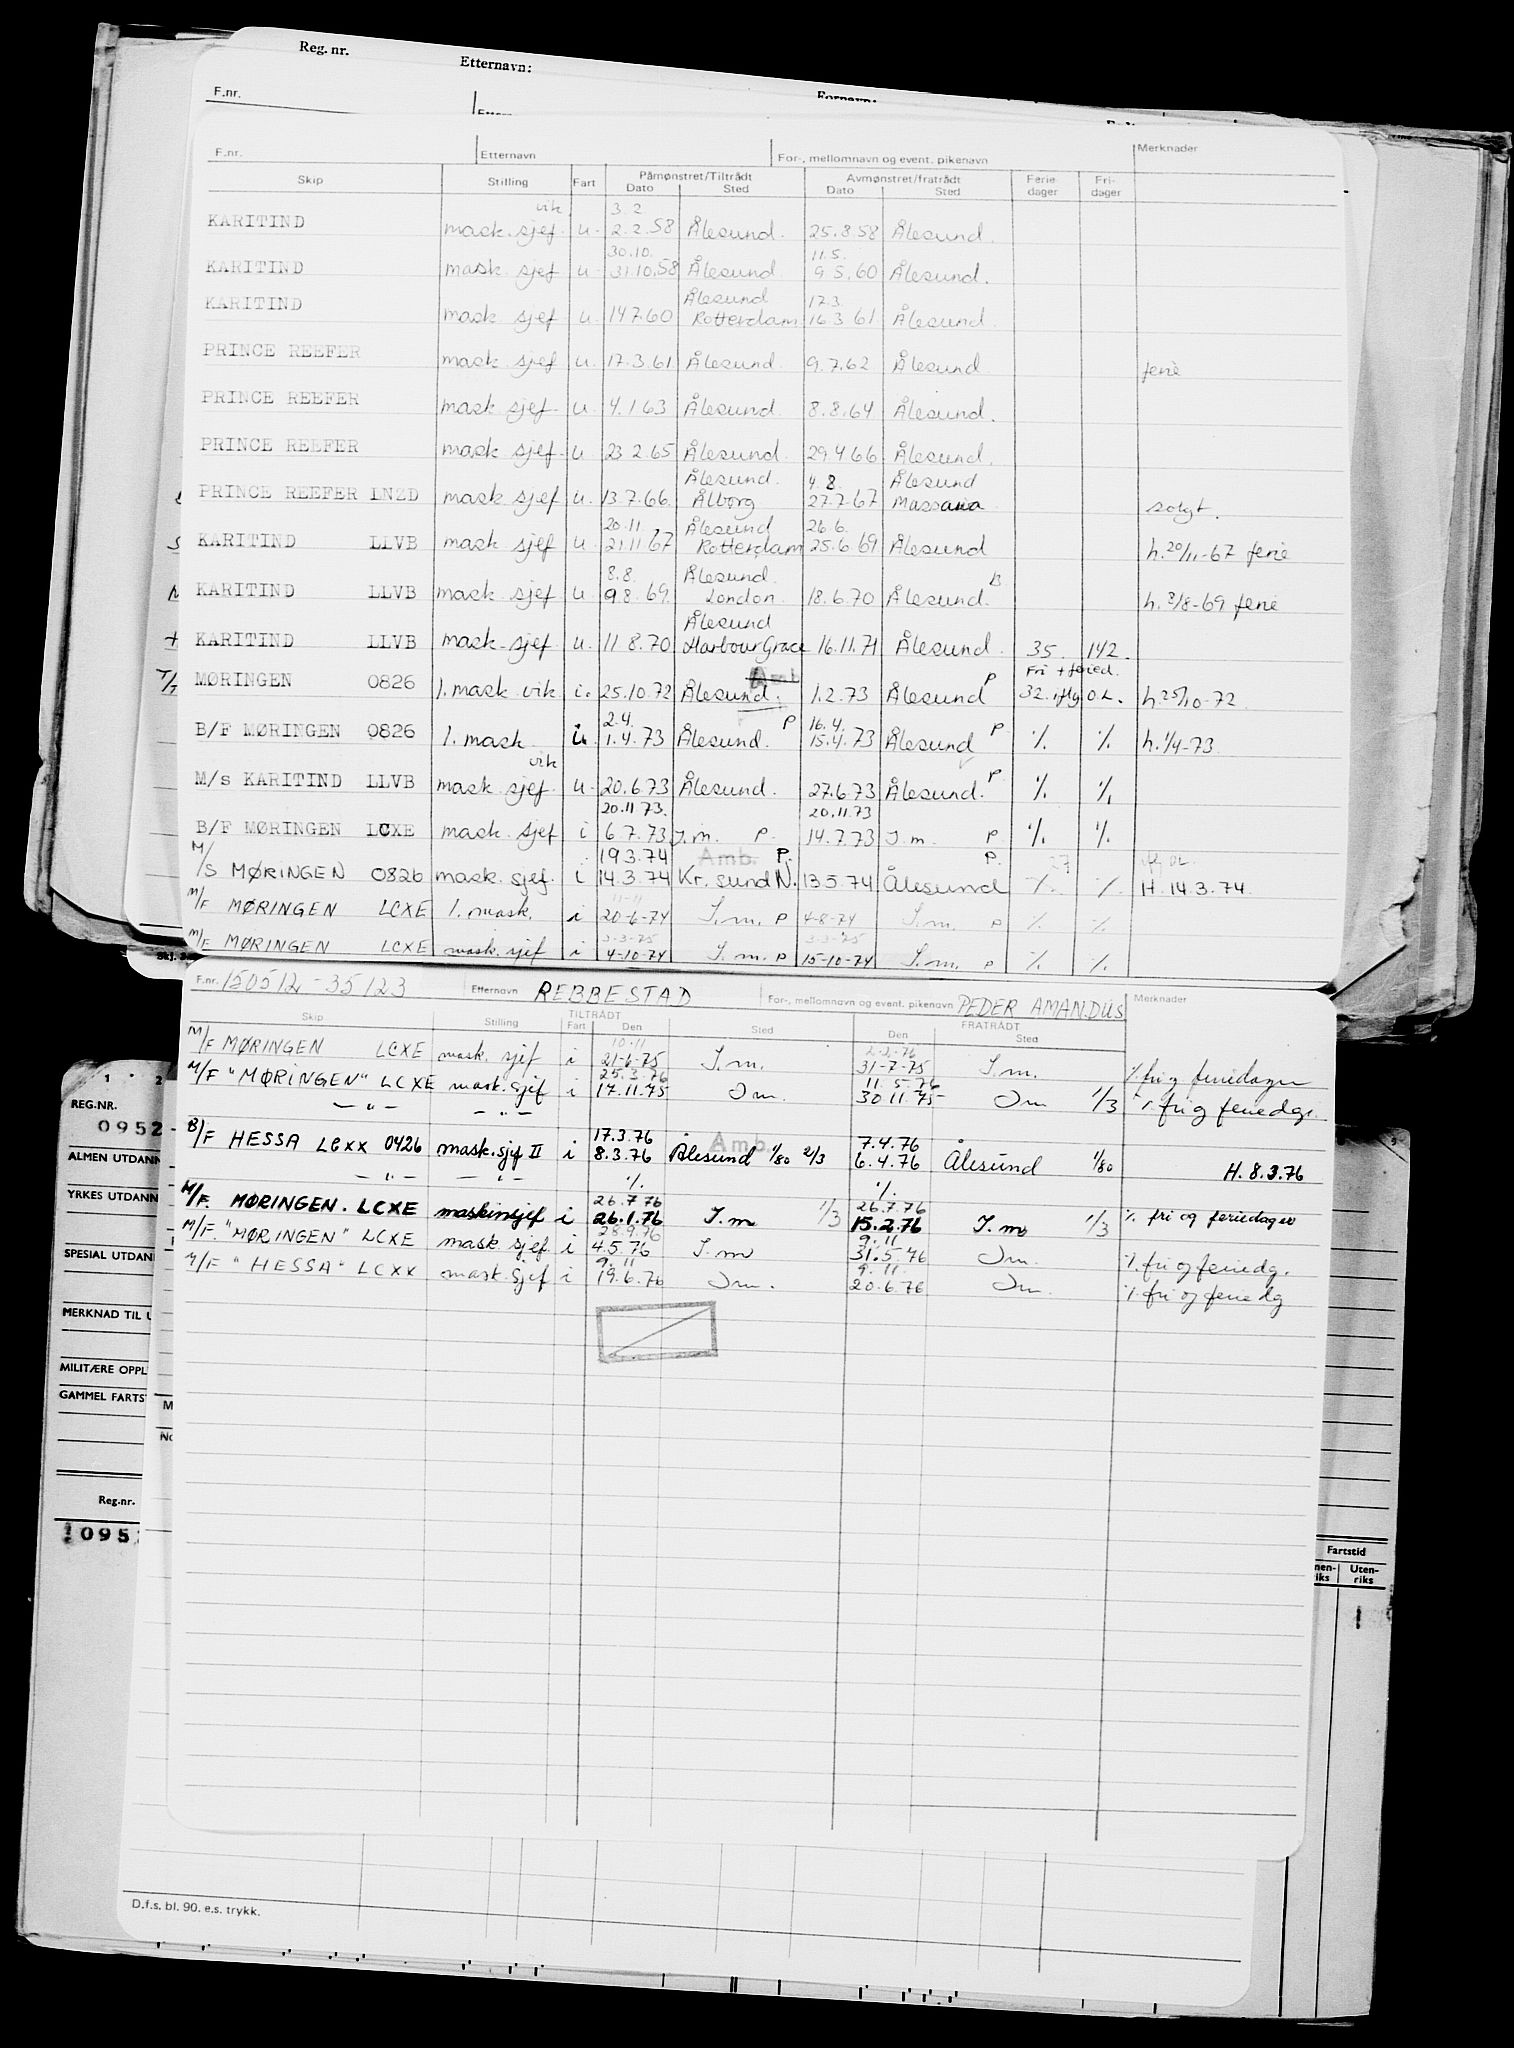 Reg. nr. Etternavn: Fornavn:
F.nr.
F.nr. Etternavn For-, mellomnavn og event. pikenavn Merknader
Skip Stilling Fart Påmønstret/Tiltrådt Avmønstret/fratrådt Ferie-dager Fri-dager
Dato Sted Dato Sted
vik. 3.2
KARITIND mask.sjef. u. 2.2.58 Ålesund. 25.8.58 Ålesund.
30.10. 11.5.
KARITIND mask. sjef u. 31.10.58 Ålesund 9.5.60 Ålesund.
Ålesund 17.3.
KARITIND mask sjef u. 14.7.60 Rotterdam 16.3.61 Ålesund.
PRINCE REEFER mask. sjef u. 17.3.61 Ålesund. 9.7.62 Ålesund ferie
PRINCE REEFER mask sjef u. 4.1.63 Ålesund. 8.8.64 Ålesund.
PRINCE REEFER mask sjef. u 23.2.65 Ålesund. 29.4.66 Ålesund.
Ålesund. 4.8. Ålesund
PRINCE REEFER LNZD mask sjef u. 13.7.66. Ålborg 27.7.67 Massawa solgt.
20.11 Ålesund 26.6.
KARITIND LLVB mask sjef u. 21.11.67 Rotterdam 25.6.69 Ålesund h.20/11-67 ferie
8.8. Ålesund. B
KARITIND LLVB mask sjef u 9.8.69. London. 18.6.70 Ålesund. h. 8/8-69 ferie
Ålesund
KARITIND LLVB mask-sjef u. 11.8.70 Harbour Grace 16.11.71 Ålesund. 35. 142.
Amb Fri + feried.
MØRINGEN 0826 1. mask vik i. 25.10.72 Ålesund. 1.2.73 Ålesund P 32. iflg O.L. h.25/10-72
2.4. P 16.4. P
B/F MØRINGEN 0826 1. mask i. 1.4.73 Ålesund. 15.4.73 Ålesund % % h.1/4-73.
vik P
M/s KARITIND LLVB mask sjef. u. 20.6.73 Ålesund. 27.6.73 Ålesund. % %
20.11.73. 20.11.73
B/F MØRINGEN LCXE mask. sjef i 6.7.73 I.m. P. 14.7.73 I.m. P % %
19.3.74 Amb. P. P. 27
M/S MØRINGEN 0826 mask. sjef. i 14.3.74 Kr.sund N. 13.5.74 Ålesund % % H. 14.3.74.
11-11
M/F MØRINGEN LCXE 1. mask. i 20-6-74 I.m. P 4-8-74 I.m. P % %
3-3-75 3-3-75
M/F MØRINGEN LCXE mask. sjef i 4-10-74 I.m. P 15-10-74 I.m. P % %
F.nr. 150512-35123 Etternavn REBBESTAD For-, mellomnavn og event. pikenavn PEDER AMANDUS Merknader
TILTRÅDT FRATRÅDT
Skip Stilling Fart Den Sted Den Sted
10.11 2-2-76
M/F MØRINGEN LCXE mask. sjef i 21-6-75 I.m. 31-7-75 I.m. % fri og feriedager
25.3.76 11.5.76
M/F "MØRINGEN" LCXE mask. sjef i 17.11.75 I m. 30.11.75 I m 1/3 % fri og feriedgr.
— " — — " —
17.3.76 Amb. 7.4.76
B/F HESSA LCXX 0426 mask.sjef II i 8.3.76 Ålesund 1/80 2/3 6.4.76 Ålesund 1/80 H. 8.3.76
— " — — " — % %
26.7.76 26.7.76
M/F. MØRINGEN. LCXE maskinsjef i 26.1.76 I.m 1/3 15.2.76 I.m 1/3 % fri og feriedager
28.9.76 9.11
M/F. "MØRINGEN" LCXE mask. sjef i 4.5.76 I.m 31.5.76 I m. % fri og feriedg.
9.11 9.11.
M/F "HESSA" LCXX mask. sjef i 19.6.76 I m. 20.6.76 I m. % fri og feriedg
1 2
REG.NR.
0952
ALMEN UTDANN
YRKES UTDANN
SPESIAL UTDAN
MERKNAD TIL U
MILITÆRE OPPL
GAMMEL FARTST
Reg.nr.
1095
Fartstid
Uten-
riks
D.f.s. bl. 90. e.s. trykk.